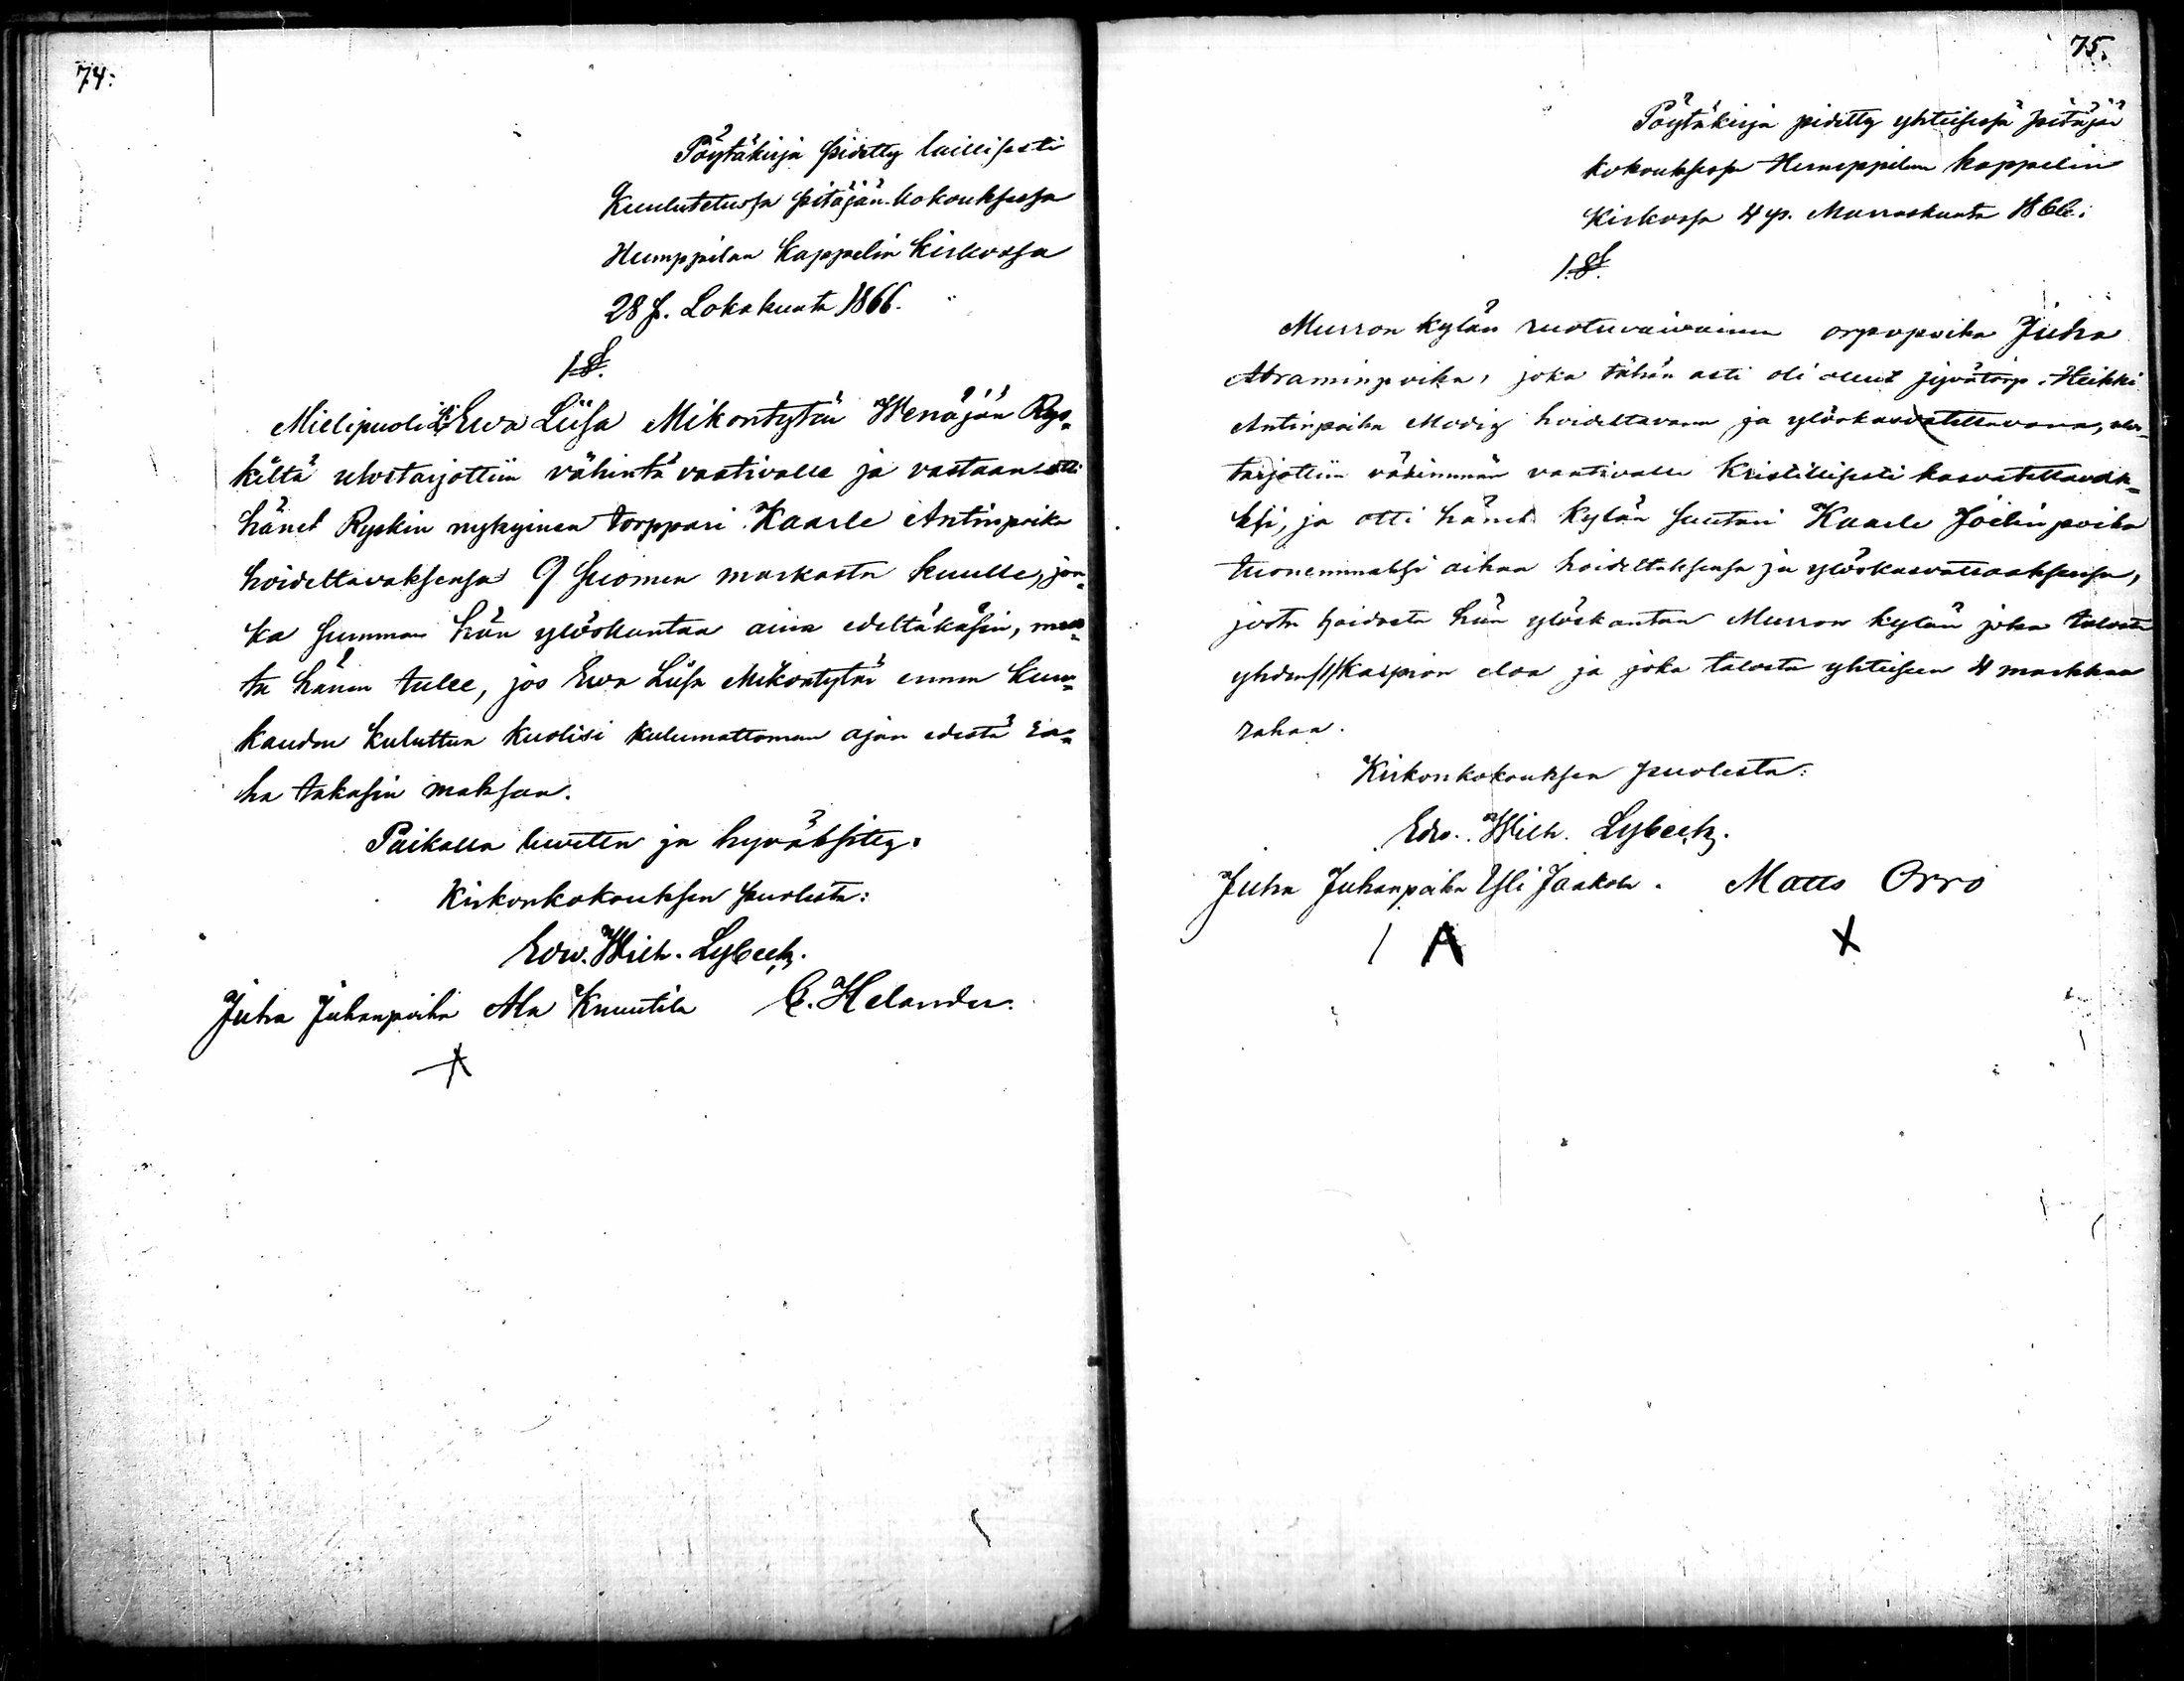 74:
Pöytäkirja pidetty laillisesti
Kuulutetussa pitäjän-kokouksessa
Humppilan Kappelin Kirkossa
28 p. Lokakuuta 1866.
1 §.
Mielipuoli Ewa Liisa Mikontytär Wenäjän Rys-
kiltä ulostarjottiin vähintä vaativalle ja vastaan otti
hänet Ryskin nykyinen torppari Kaarle Antinpoika
hoidettavaksensa 9 Suomen markasta kuulle, jon-
ka summan hän ylöskantaa aina edeltäkäsin, mut-
ta hänen tulee, jos Ewa Liisa Mikontytär ennen kuu-
kauden kuluttua kuolisi kulumattoman ajan edestä ra-
ha takasin maksaa.
Paikalla luvettu ja hyväksitty.
Kirkonkokouksen puolesta:
Edw. Wilh. Lybeck.
Juha Juhanpoika Ala Knuutila C. Helander.
75.
Pöytäkirja pidetty yhteisessä pitäjän
kokouksessa Humppilan kappelin
Kirkossa 4 p. Marraskuuta 1866:
1. §.
Murron kylän ruotuvaivainen orpopoika Juha
Abraminpoika, joka tähän asti oli ollut jyvätorp. Heikki
Antinpoika Modig hoidettavana ja ylöskasvatettavana, ulos-
tarjottiin vähimmän vaativalle Kristillisesti kasvatettavak-
ksi, ja otti hänet kylän suutari Kaarle Joelinpoika
tuonemmaksi aikaa hoidettaksensa ja ylöskasvattaaksensa,
josta hoidosta hän ylöskantaa Murron kylän joka talosta
yhden /1/ Kaspion eloa ja joka talosta yhteiseen 4 markkaa
rahaa.
Kirkonkokouksen puolesta:
Edw. Wilh. Lybeck.
Juha Juhanpoika Yli Jaakola. Matts Orro